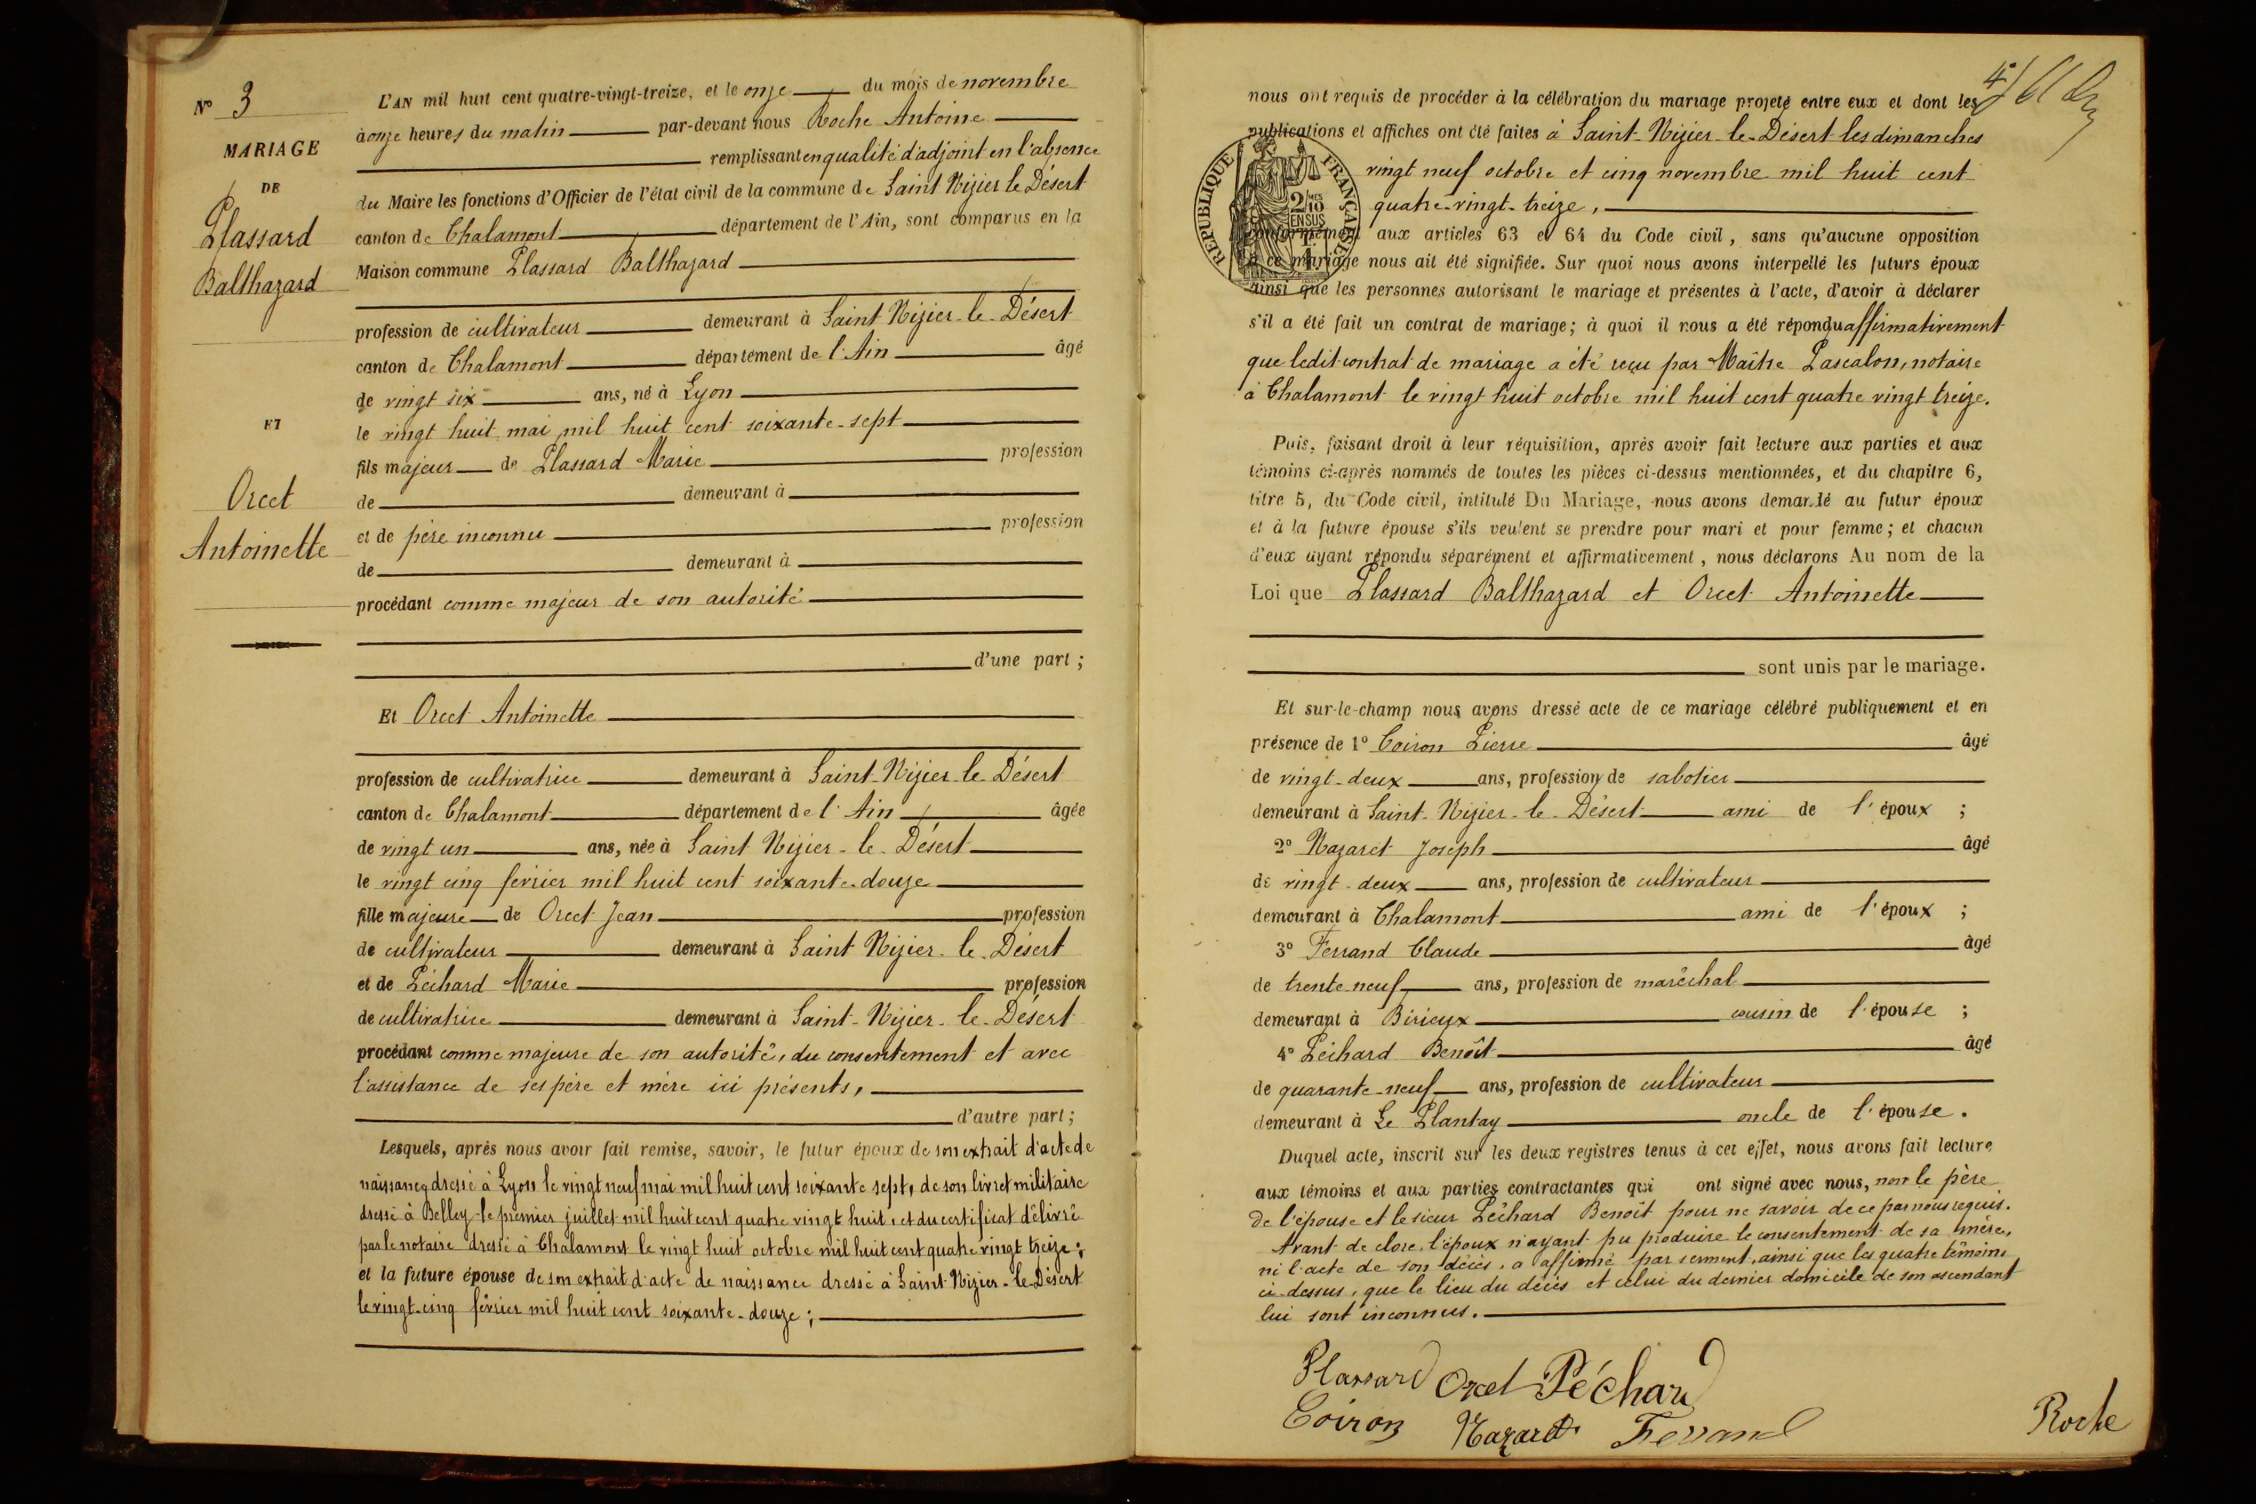 N° 3
MARIAGE
DE
Plassard
Balthazard
ET
Orcet
Antoinette
L'AN mil huit cent quatre-vingt-treize, et le onze du mois de novembre
à onze heures du matin par-devant nous Roche Antoine
remplissant en qualité d'adjoint en l'absence
du Maire les fonctions d'Officier de l'état civil de la commune de Saint Nizier le Désert
canton de Chalamont département de l'Ain, sont comparus en la
Maison commune Plassard Balthazard
profession de cultivateur demeurant à Saint Nizier-le-Désert
canton de Chalamont département de l'Ain âgé
de vingt six ans, né à Lyon
le vingt huit mai mil huit cent soixante-sept
fils majeur de Plassard Marie profession
de demeurant à
et de père inconnu profession
de demeurant à
procédant comme majeur de son autorité
d'une part ;
Et Orcet Antoinette
profession de cultivatrice demeurant à Saint-Nizier-le-Désert
canton de Chalamont département de l'Ain âgée
de vingt un ans, née à Saint Nizier-le-Désert
le vingt cinq février mil huit cent soixante-douze
fille majeure de Orcet Jean profession
de cultivateur demeurant à Saint Nizier-le-Désert
et de Péchard Marie profession
de cultivatrice demeurant à Saint-Nizier-le-Désert
procédant comme majeure de son autorité, du consentement et avec
l'assistance de ses père et mère ici présents,
d'autre part ;
Lesquels, après nous avoir fait remise, savoir, le futur époux de son extrait d'acte de
naissance dressé à Lyon le vingt neuf mai mil huit cent soixante sept, de son livret militaire
dressé à Belley le premier juillet mil huit cent quatre vingt huit, et du certificat délivré
par le notaire dressé à Chalamont le vingt huit octobre mil huit cent quatre vingt treize ;
et la future épouse de son extrait d'acte de naissance dressé à Saint-Nizier-le-Désert
le vingt-cinq février mil huit cent soixante-douze ;
nous ont requis de procéder à la célébration du mariage projeté entre eux et dont les
publications et affiches ont été faites à Saint-Nizier-le-Désert les dimanches
vingt neuf octobre et cinq novembre mil huit cent
quatre-vingt-treize,
conformément aux articles 63 et 64 du Code civil, sans qu'aucune opposition
à ce mariage nous ait été signifiée. Sur quoi nous avons interpellé les futurs époux
ainsi que les personnes autorisant le mariage et présentes à l'acte, d'avoir à déclarer
s'il a été fait un contrat de mariage ; à quoi il nous a été répondu affirmativement
que ledit contrat de mariage a été reçu par Maître Pascalon, notaire
à Chalamont le vingt huit octobre mil huit cent quatre vingt treize.
REPUBLIQUE FRANÇAISE
2/10
EN SUS
Puis, faisant droit à leur réquisition, après avoir fait lecture aux parties et aux
témoins ci-après nommés de toutes les pièces ci-dessus mentionnées, et du chapitre 6,
titre 5, du Code civil, intitulé Du Mariage, nous avons demandé au futur époux
et à la future épouse s'ils veulent se prendre pour mari et pour femme ; et chacun
d'eux ayant répondu séparément et affirmativement, nous déclarons Au nom de la
Loi que Plassard Balthazard et Orcet Antoinette
sont unis par le mariage.
Et sur-le-champ nous avons dressé acte de ce mariage célébré publiquement et en
présence de 1° Coiron Pierre âgé
de vingt-deux ans, profession de sabotier
demeurant à Saint-Nizier-le-Désert ami de l'époux ;
2° Nazaret Joseph âgé
de vingt-deux ans, profession de cultivateur
demeurant à Chalamont ami de l'époux ;
3° Ferrand Claude âgé
de trente-neuf ans, profession de maréchal
demeurant à Birieux cousin de l'épouse ;
4° Péchard Benoît âgé
de quarante-neuf ans, profession de cultivateur
demeurant à Le Plantay oncle de l'épouse.
Duquel acte, inscrit sur les deux registres tenus à cet effet, nous avons fait lecture
aux témoins et aux parties contractantes qui ont signé avec nous, non le père
de l'épouse et le sieur Péchard Benoît pour ne savoir de ce par nous requis.
Avant de clore, l'époux n'ayant pu produire le consentement de sa mère,
ni l'acte de son décès, a affirmé par serment, ainsi que les quatre témoins
ci-dessus, que le lieu du décès et celui du dernier domicile de son ascendant
lui sont inconnus.
Plassard Orcet Péchard
Coiron Nazaret Ferrand
Roche